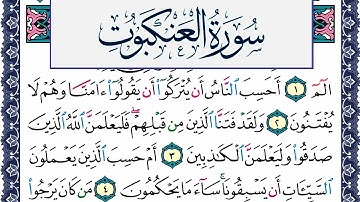 سُورَةُ العَنكَبُوت
الٓمٓ ١ أَحَسِبَ ٱلنَّاسُ أَن يُتْرَكُوٓا۟ أَن يَقُولُوٓا۟ ءَامَنَّا وَهُمْ لَا
يُفْتَنُونَ ٢ وَلَقَدْ فَتَنَّا ٱلَّذِينَ مِن قَبْلِهِمْ ۖ فَلَيَعْلَمَنَّ ٱللَّهُ ٱلَّذِينَ
صَدَقُوا۟ وَلَيَعْلَمَنَّ ٱلْكَـٰذِبِينَ ٣ أَمْ حَسِبَ ٱلَّذِينَ يَعْمَلُونَ
ٱلسَّيِّـَٔاتِ أَن يَسْبِقُونَا ۚ سَآءَ مَا يَحْكُمُونَ ٤ مَن كَانَ يَرْجُوا۟